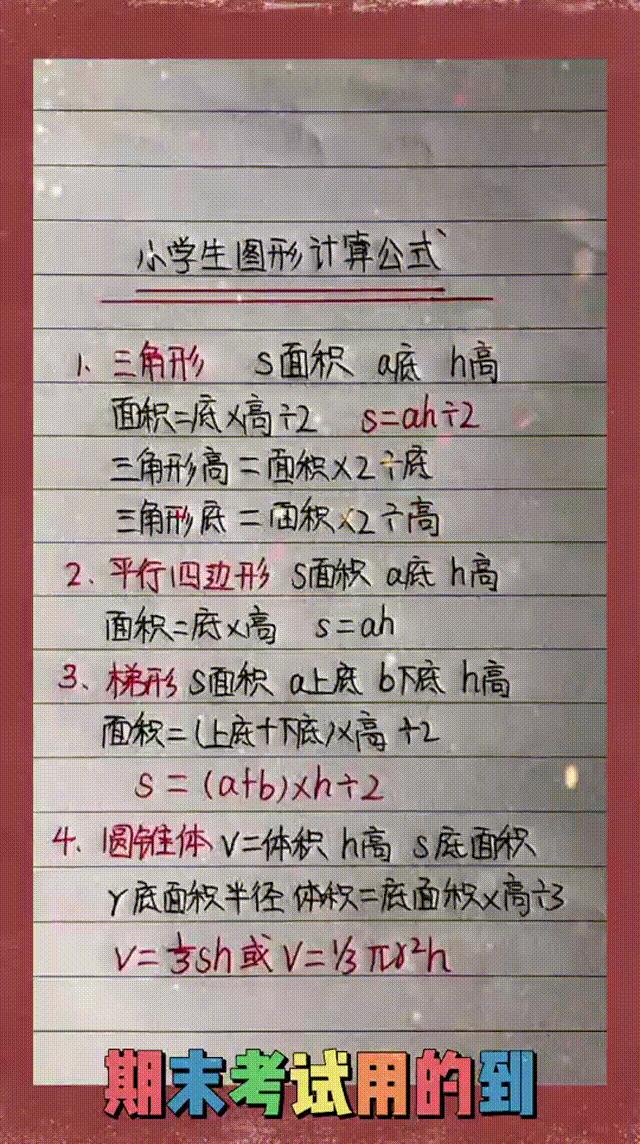 小学生图形计算公式
1、三角形 S面积 a底 h高
面积=底×高÷2 S=ah÷2
三角形高=面积×2÷底
三角形底=面积×2÷高
2、平行四边形 S面积 a底 h高
面积=底×高 S=ah
3、梯形 S面积 a上底 b下底 h高
面积=(上底+下底)×高÷2
S=(a+b)×h÷2
4、圆锥体 V=体积 h高 S底面积
r底面积半径 体积=底面积×高÷3
V=1/3Sh或V=1/3πr²h
期末考试用的到